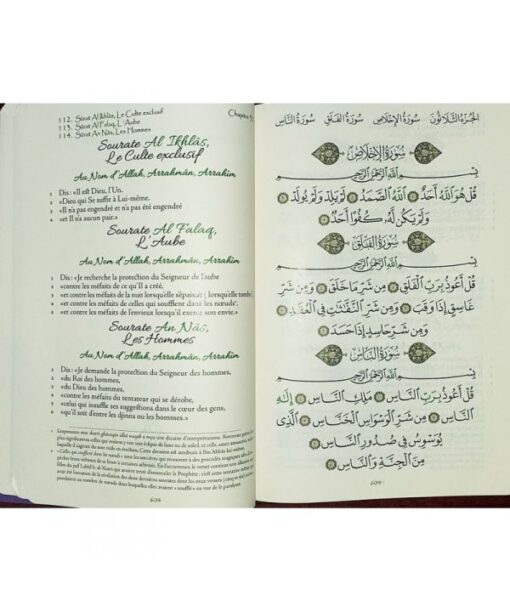 112. Sûrat Al Ikhlâs, Le Culte exclusif
113. Sûrat Al Falaq, L'Aube
114. Sûrat An Nâs, Les Hommes
Chapitre
Sourate Al Ikhlâs,
Le Culte exclusif
Au Nom d'Allah, Arrahmân, Arrahîm
1 Dis : «Il est Dieu, l'Un.
2 «Dieu qui Se suffit à Lui-même.
3 «Il n'a pas engendré et n'a pas été engendré
4 «et Il n'a aucun pair.»
Sourate Al Falaq,
L'Aube
Au Nom d'Allah, Arrahmân, Arrahîm
1 Dis : «Je recherche la protection du Seigneur de l'aube
2 «contre les méfaits de ce qu'Il a créé,
3 «et contre les méfaits de la nuit lorsqu'elle s'épaissit ( lorsqu'elle tombe)
4 «et contre les méfaits de celles qui soufflent dans les nœuds,
5 «et contre les méfaits de l'envieux lorsqu'il exerce son envie.»
Sourate An Nâs,
Les Hommes
Au Nom d'Allah, Arrahmân, Arrahîm
1 Dis : «Je demande la protection du Seigneur des hommes,
2 «du Roi des hommes,
3 «du Dieu des hommes,
4 «contre les méfaits du tentateur qui se dérobe,
5 «celui qui insuffle ses suggestions dans le cœur des gens,
6 «qu'il soit d'entre les djinns ou les hommes.»
604
الجزء الثلاثون سورة الإخلاص سورة الفلق سورة الناس
سورة الإخلاص
بسم الله الرحمن الرحيم
قُلْ هُوَ ٱللَّهُ أَحَدٌ ١ ٱللَّهُ ٱلصَّمَدُ ٢ لَمْ يَلِدْ وَلَمْ يُولَدْ ٣
وَلَمْ يَكُن لَّهُۥ كُفُوًا أَحَدٌۢ ٤
سورة الفلق
بسم الله الرحمن الرحيم
قُلْ أَعُوذُ بِرَبِّ ٱلْفَلَقِ ١ مِن شَرِّ مَا خَلَقَ ٢ وَمِن شَرِّ
غَاسِقٍ إِذَا وَقَبَ ٣ وَمِن شَرِّ ٱلنَّفَّٰثَٰتِ فِى ٱلْعُقَدِ ٤
وَمِن شَرِّ حَاسِدٍ إِذَا حَسَدَ ٥
سورة الناس
بسم الله الرحمن الرحيم
قُلْ أَعُوذُ بِرَبِّ ٱلنَّاسِ ١ مَلِكِ ٱلنَّاسِ ٢ إِلَٰهِ
ٱلنَّاسِ ٣ مِن شَرِّ ٱلْوَسْوَاسِ ٱلْخَنَّاسِ ٤ ٱلَّذِى
يُوَسْوِسُ فِى صُدُورِ ٱلنَّاسِ ٥
مِنَ ٱلْجِنَّةِ وَٱلنَّاسِ ٦
٦٠٤